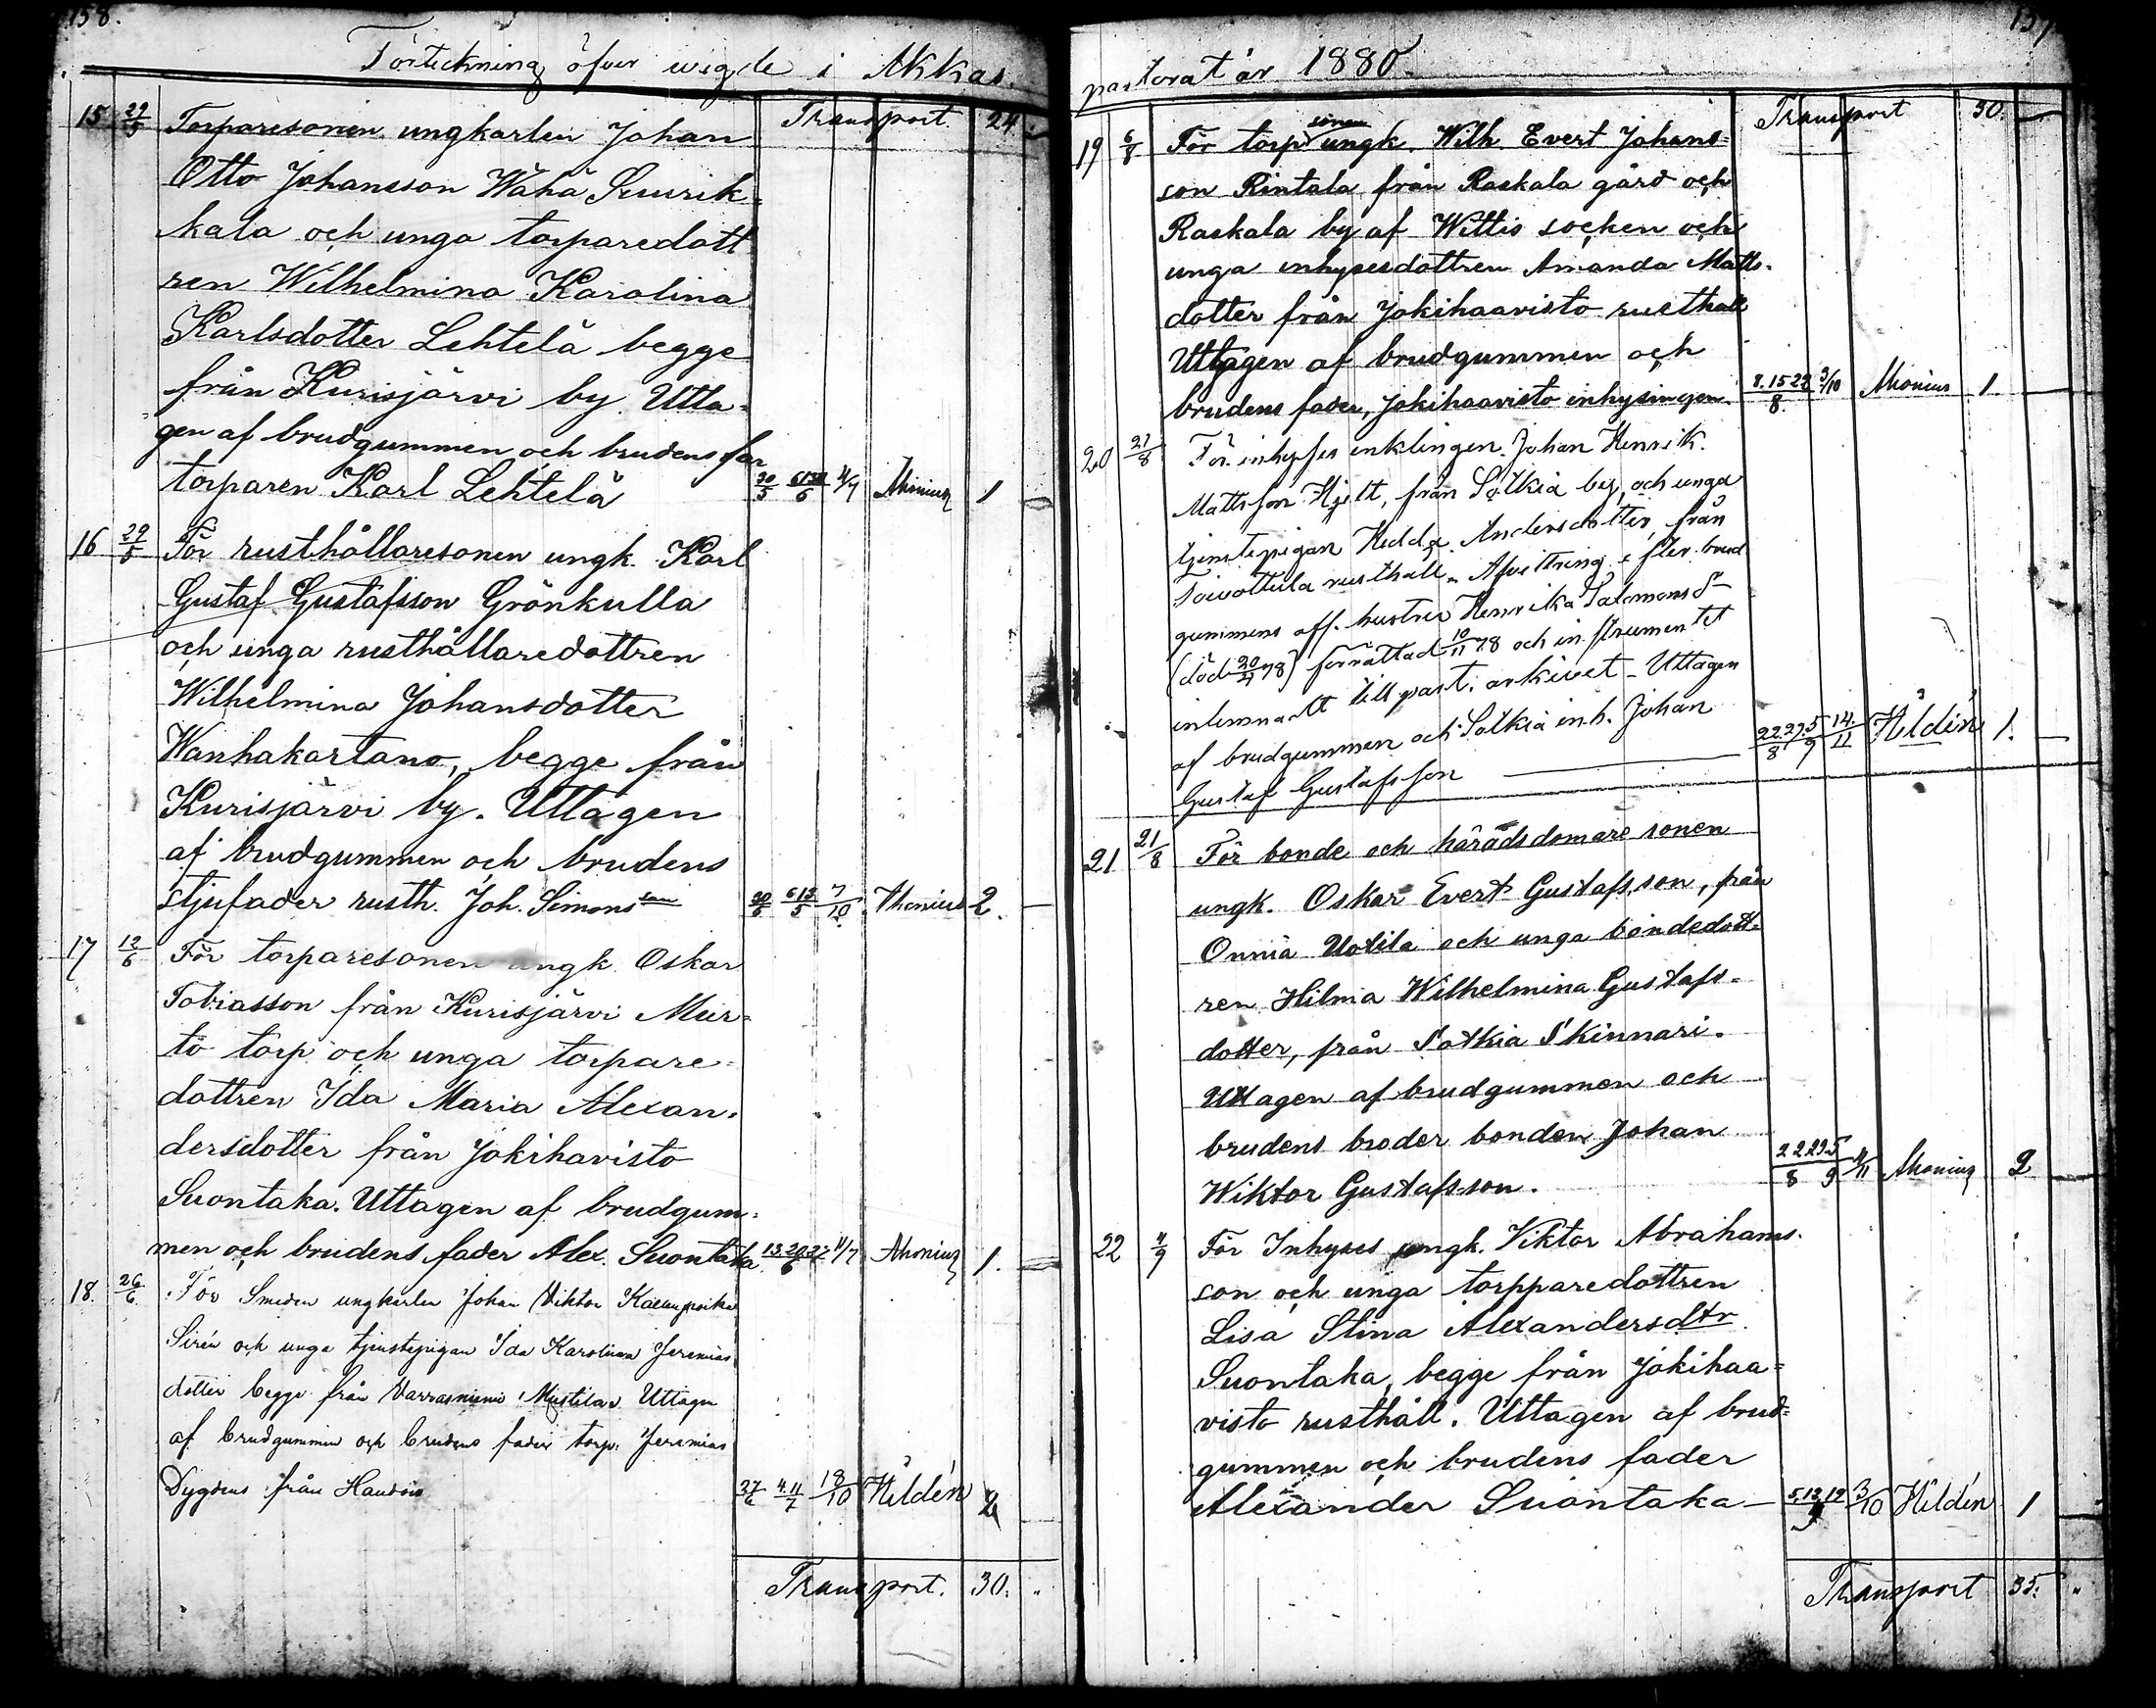 158.
Förteckning öfver wigde i Akkas
Transport. 24
15 29/5 Torparesonen ungkarlen Johan
Otto Johansson Wähä Suurik-
kala och unga torparedott
ren Wilhelmina Karolina
Karlsdotter Lehtelä begge
från Kurisjärvi by. Utta-
gen af brudgummen och brudens far
torparen Karl Lehtelä 30/5 6 13/6 4/7 1
16 29/5 För rusthållaresonen ungk. Karl
Gustaf Gustafsson Grönkulla
och unga rusthållaredottren
Wilhelmina Johansdotter
Wanhakartano, begge från
Kurisjärvi by. Uttagen
af brudgummen och brudens
stjufader rusth. Joh. Simonsson 7/10 2.
17 12/6 För torparesonen ungk Oskar
Tobiasson från Kurisjärvi Mur-
to torp och unga torpare-
dottren Ida Maria Alexan-
dersdotter från Jokihavisto
Suontaka. Uttagen af brudgum-
men och brudens fader Alex. Suontaka 13 20 27/6 1.
18. 26/6 För Smeden ungkarlen Johan Viktor
Sirén och unga tjenstepigan Ida Karolina Jeremias
dotter begge från Varrasniemi Mustila. Uttagen
af brudgummen och brudens fader torp. Jeremias
från 27/6 4.11/7 18/10 Hildén 2
Transport. 30. "
pastorat år 1880.
Transport 30.
19 6/8 För torp sonen ungk. Wilh Evert Johans-
son Rintala från Raskala gård och
Raskala by af Wittis socken och
unga inhysesdottren Amanda Matts-
dotter från Jokihaavisto rusthåll
Uttagen af brudgummen och
brudens fader, Jokihaavisto inhysingen. 8.15 22/8. 3/10 1.
20 21/8 För inhyses enklingen Johan Henrik
Mattsson Hjelt, från Sotkia by, och unga
tjenstepigan Hedda Andersdotter, från
Toivottula rusthåll. Afvittring efter brud
gummens afl. hustru Henrika Salomonsd
(död 20/4 78) förrättad 10/11 78 och instrumentet
inlemnadt till past. arkivet - Uttagen
af brudgummen och Sotkia inh. Johan
Gustaf Gustafsson 22.29/8 5/9 14./11 Hildén 1.
21 21/8 För bonde och häradsdomare sonen
ungk. Oskar Evert Gustafsson, från
Onnia Uotila och unga bondedott-
ren Hilma Wilhelmina Gustafs-
dotter, från Sotkia Skinnari.
Uttagen af brudgummen och
brudens broder bonden Johan
Wiktor Gustafsson. 22 29/8 5/9 2
22 4/9 För Inhyses ungk. Viktor Abrahams-
son och unga torpparedottren
Lisa Stina Alexandersdtr
Suontaka, begge från Jokihaa-
visto rusthåll. Uttagen af brud-
gummen och brudens fader
Alexander Suontaka — 5.12.19/9 3/10 Hildén 1
Transport 35. "